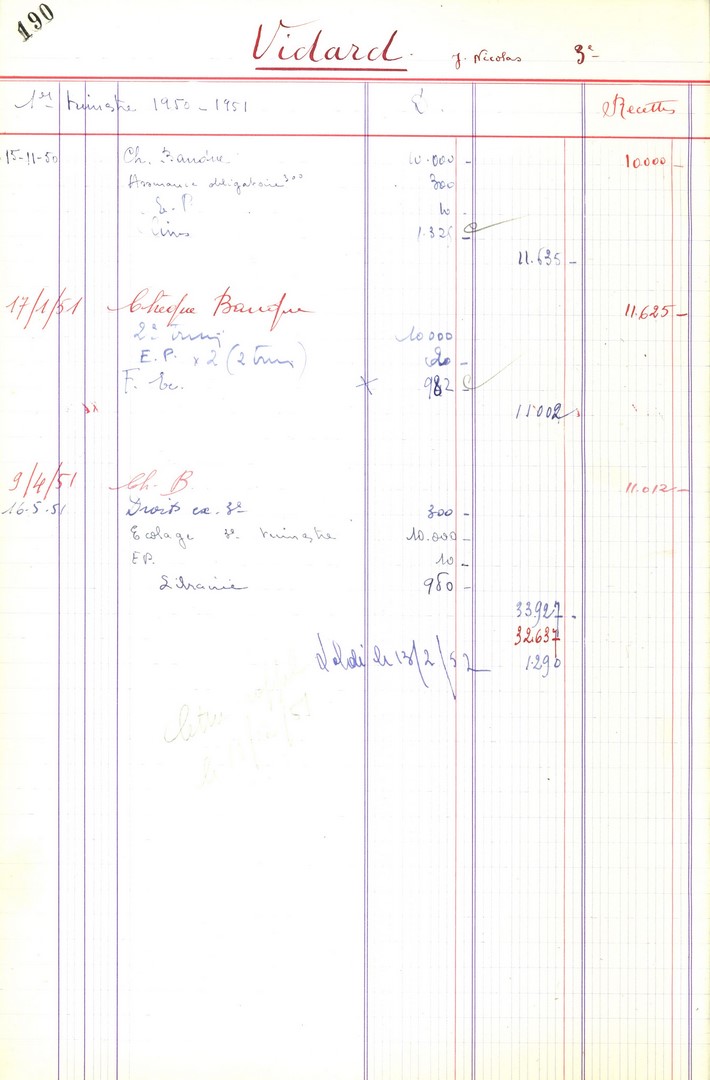 190
Vidard. J. Nicolas 3e
1er trimestre 1950-1951 Recettes
15-11-50 Ch. Banque 10.000 - 10000 -
Assurance obligatoire 300 300
E. P. 10 -
Livres 1.325
11.635 -
17/1/51 Chèque Banque 11.625 -
2e trim 10000
E.P. x 2 (2 trim) 20 -
F. Sc. x 982
11002
9/4/51 Ch. B. 11.012 -
16-5-51 Droits ex. 3e 300 -
Ecolage 3e trimestre 10.000 -
EP. 10 -
Librairie 980 -
33.927 -
32.637
Soldé le 13/2/52 1.290